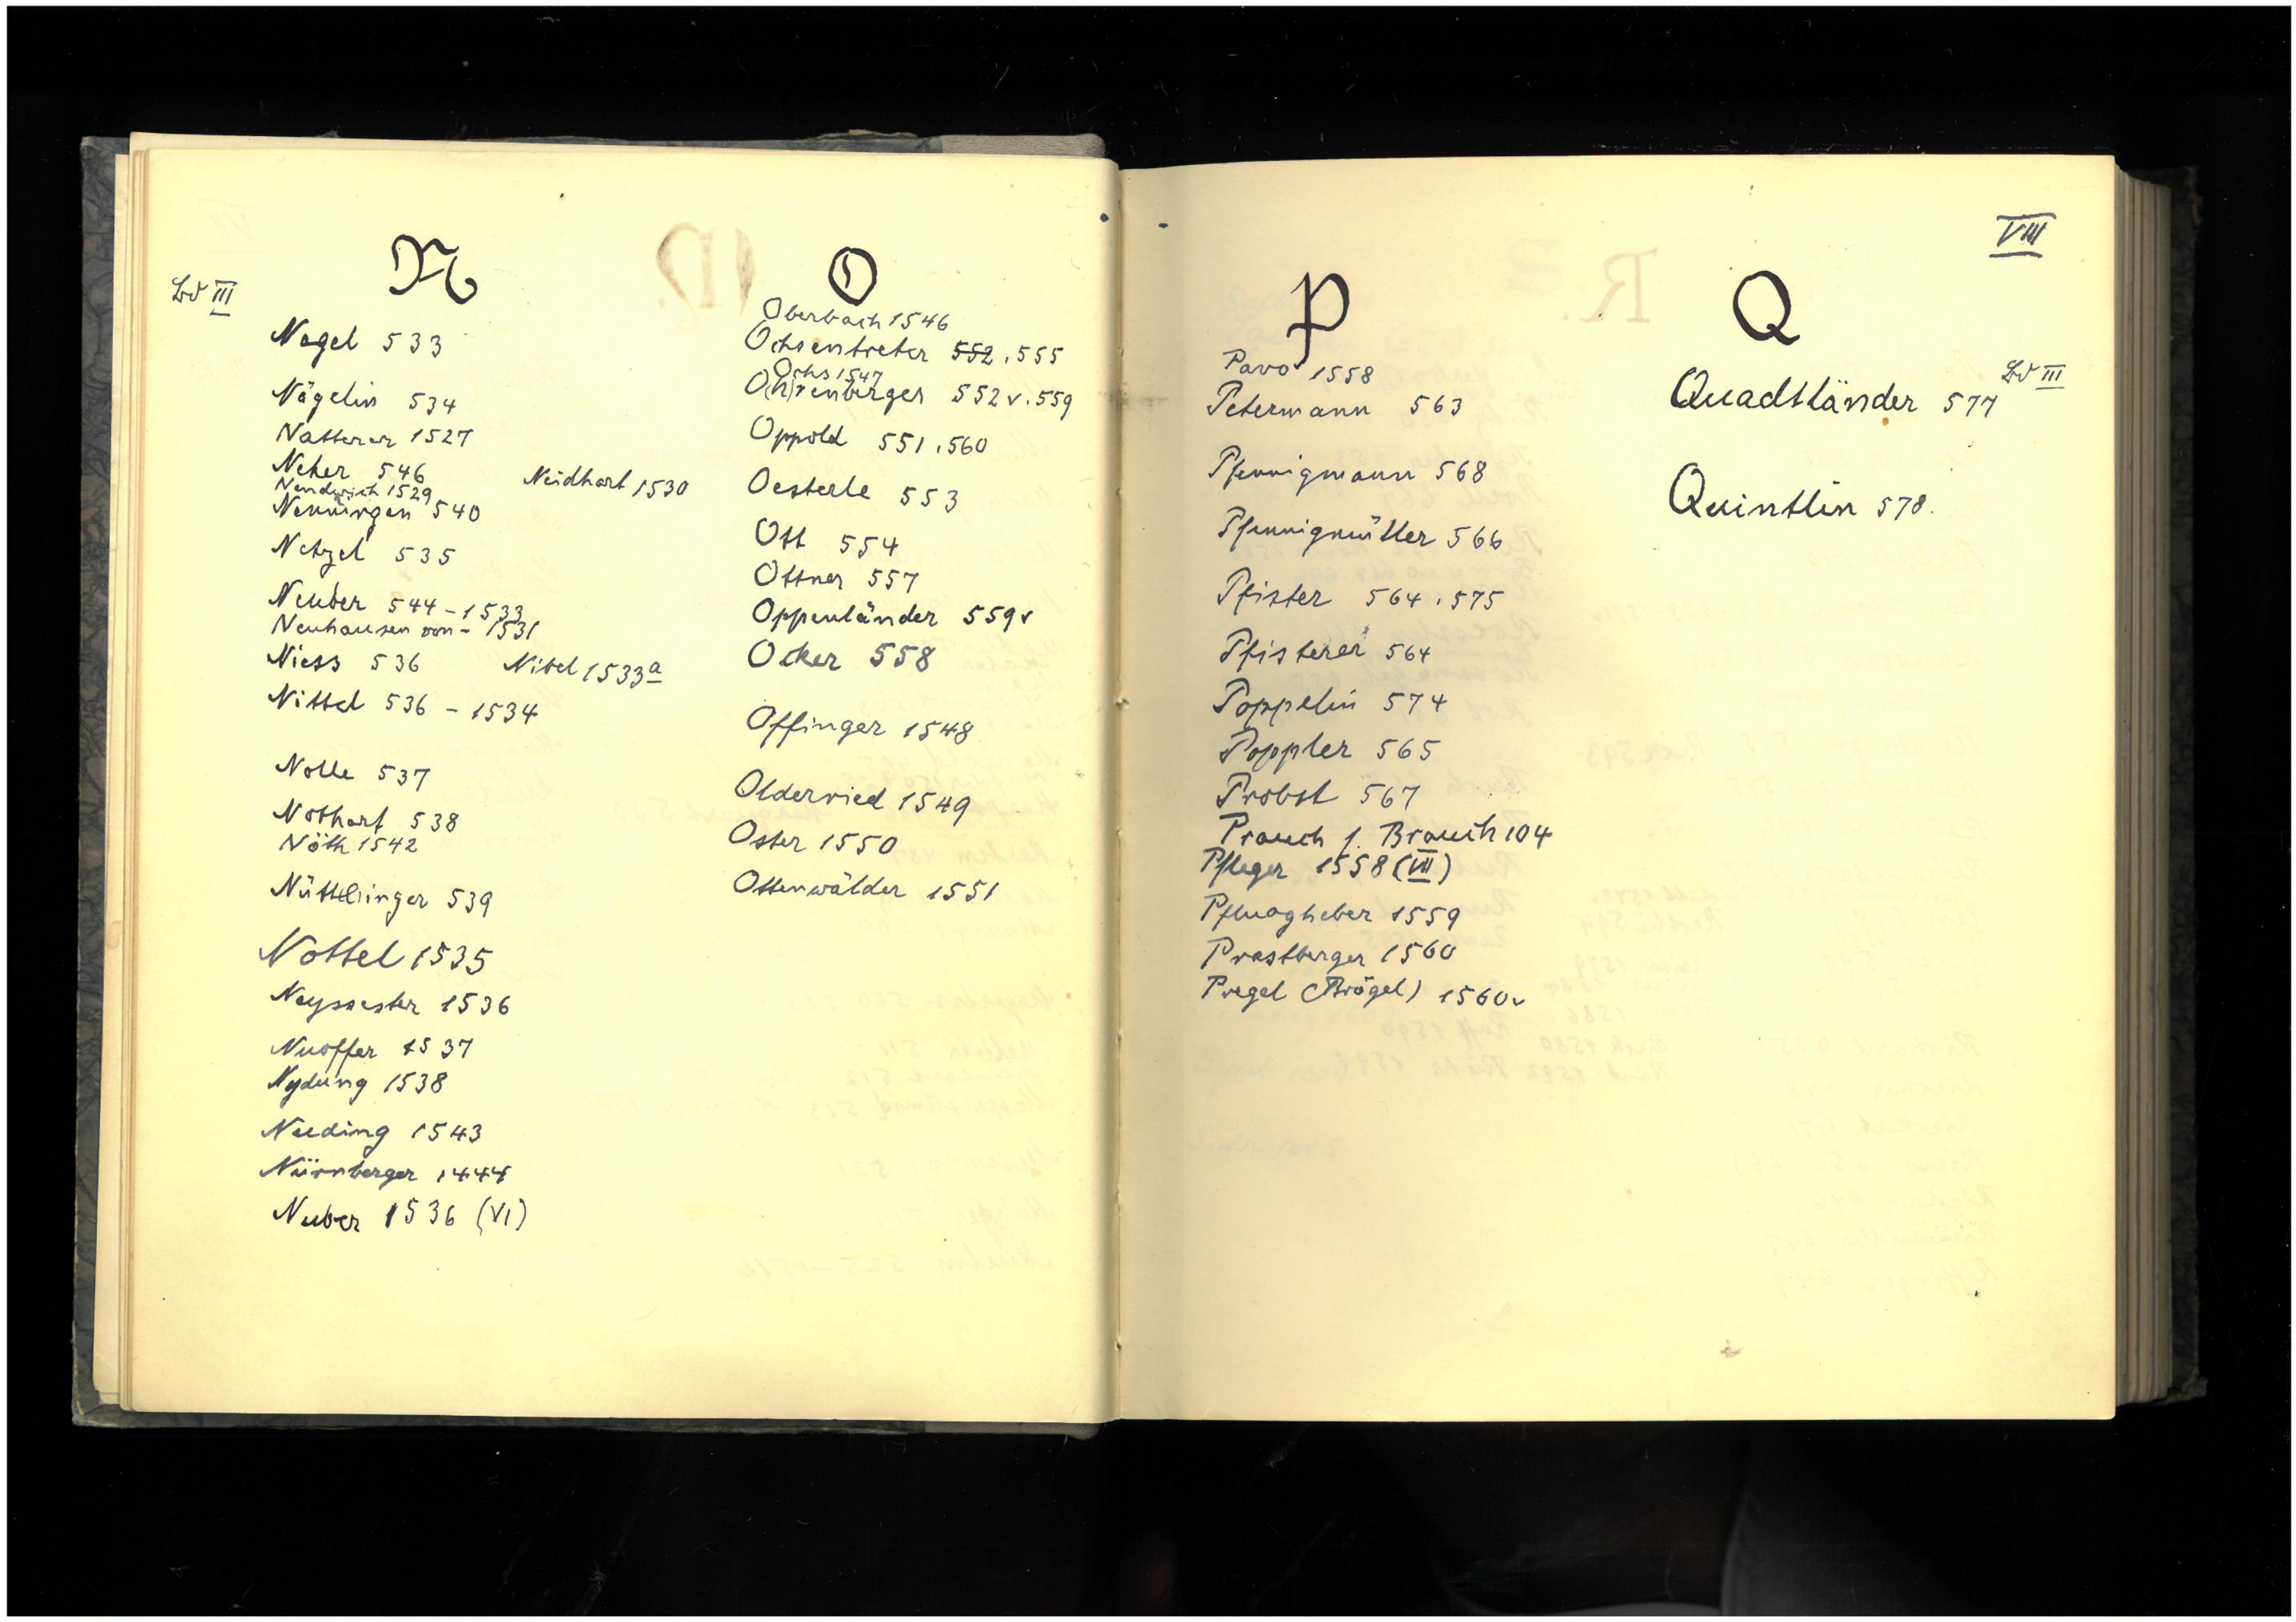 N
Bd III
Nagel 533
Nägelin 534
Natterer 1527
Neher 546
Neidhart 1530
Nendwich 1529
Nenningen 540
Netzel 535
Neuber 544 - 1533
Neuhausen von - 1531
Niess 536
Nibel 1533a
Nittel 536 - 1534
Nolle 537
Nothart 538
Nöth 1542
Nüttlinger 539
Nottel 1535
Neysester 1536
Nuoffer 1537
Nydung 1538
Nueding 1543
Nürnberger 1444
Nuber 1536 (VI)
O
Oberbach 1546
Ochsentreter 552, 555
Ochs 1547
O(h)renberger 552v. 559
Oppold 551, 560
Oesterle 553
Ott 554
Ottner 557
Oppenländer 559v
Ocker 558
Offinger 1548
Olderried 1549
Oster 1550
Ottenwälder 1551
VIII
P
Pavo 1558
Petermann 563
Pfennigmann 568
Pfennigmüller 566
Pfister 564, 575
Pfisterer 564
Poppelin 574
Poppler 565
Probst 567
Prauch f. Brauch 104
Pfleger 1558 (VII)
Pfluogheber 1559
Prastberger 1560
Pregel (Brögel) 1560v
Q
Bd III
Quadtländer 577
Quintlin 578.